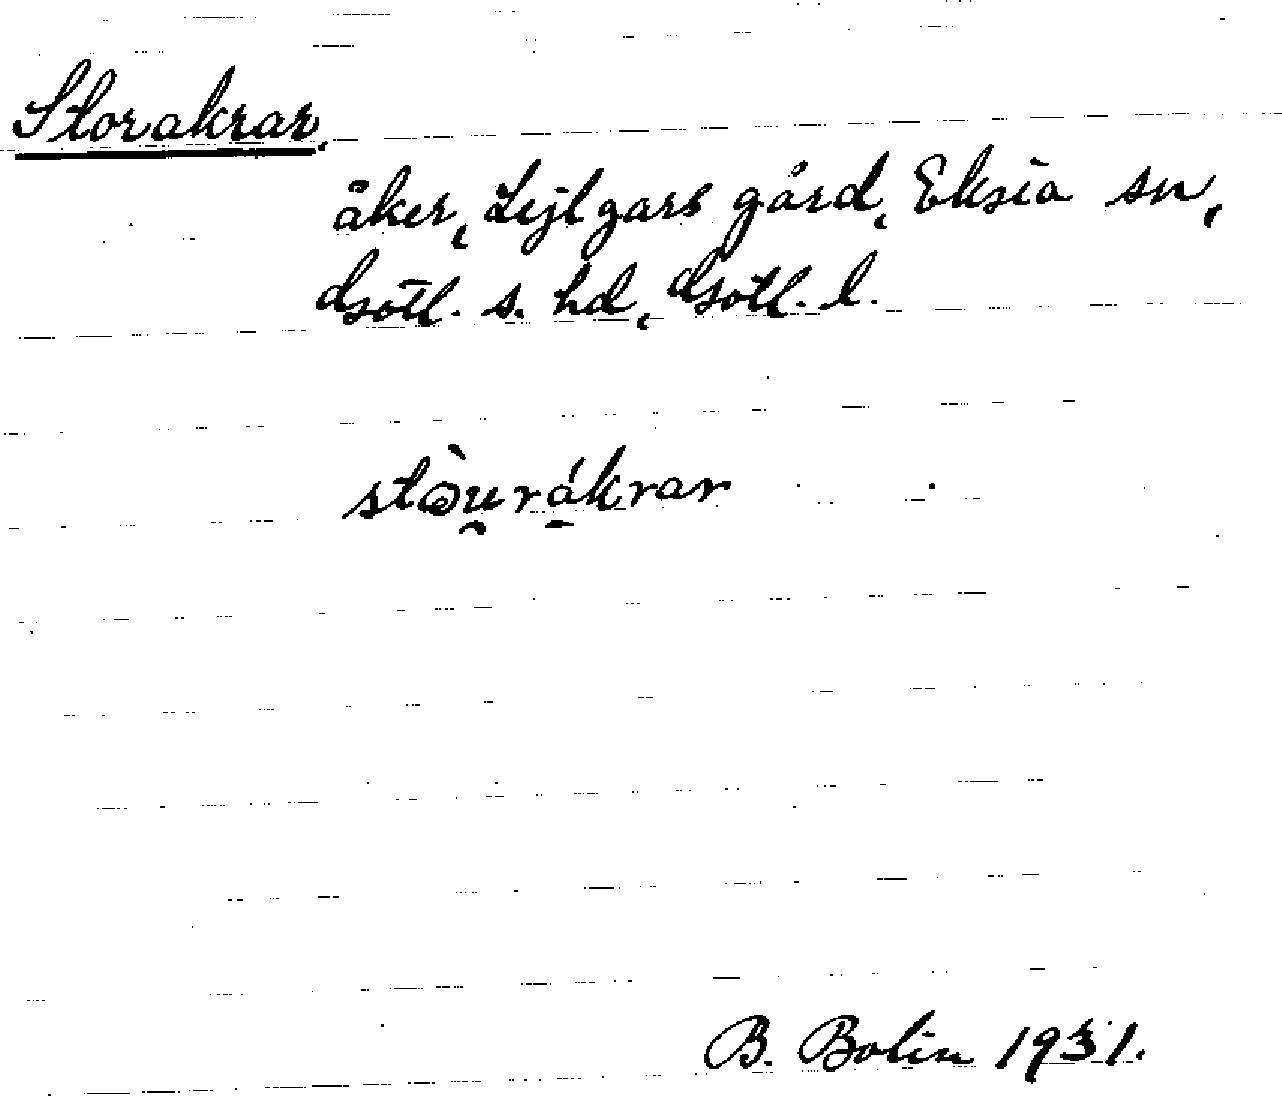 Storakrar,
åker, Lejlgars gård, Eksta sn,
Gotl. s. hd, Gotl. l.
stòu̯rákrar
B. Bolin 1931.